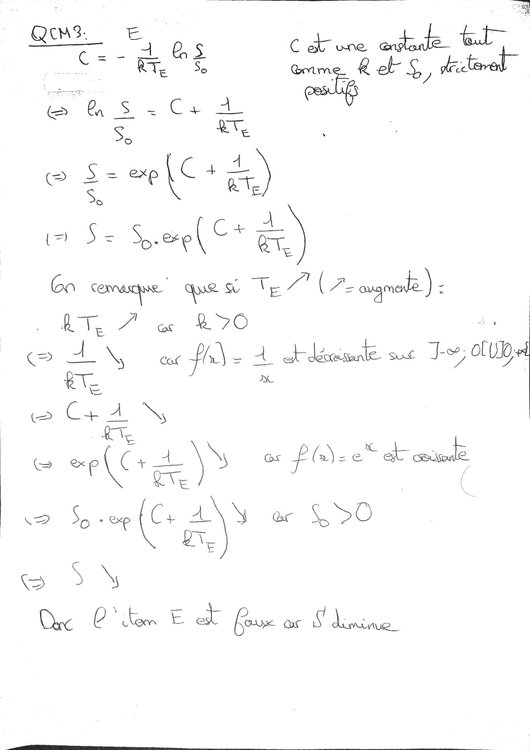 QCM3: E
C = - 1/(kT_E) ln S/S₀
C est une constante tout
comme k et S₀, strictement
positifs
(=) ln S/S₀ = C + 1/(kT_E)
(=) S/S₀ = exp(C + 1/(kT_E))
(=) S = S₀.exp(C + 1/(kT_E))
On remarque que si T_E ↗ (↗ = augmente) :
kT_E ↗ car k > 0
(=) 1/(kT_E) ↘ car f(x) = 1/x est décroissante sur ]-∞; 0[U]0; +∞[
(=) C + 1/(kT_E) ↘
(=) exp(C + 1/(kT_E)) ↘ car f(x) = e^x est croissante
(=) S₀ . exp(C + 1/(kT_E)) ↘ car S₀ > 0
(=) S ↘
Donc l'item E est faux car S diminue